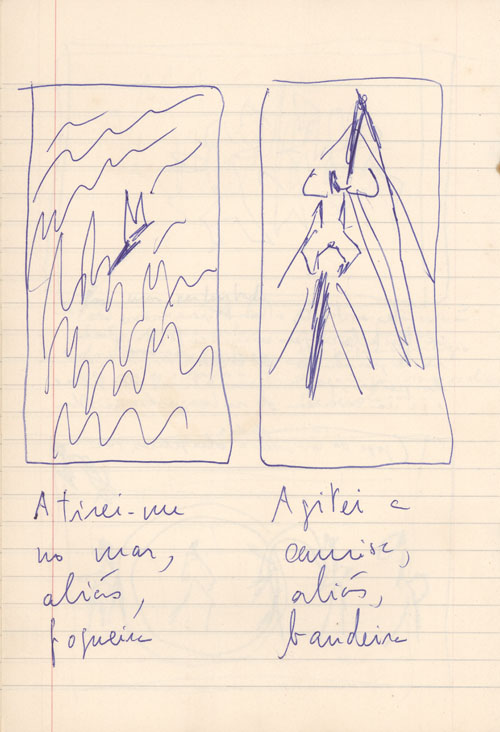 Atirei-me
no mar,
aliás,
fogueira
Agitei a
camisa,
aliás,
bandeira